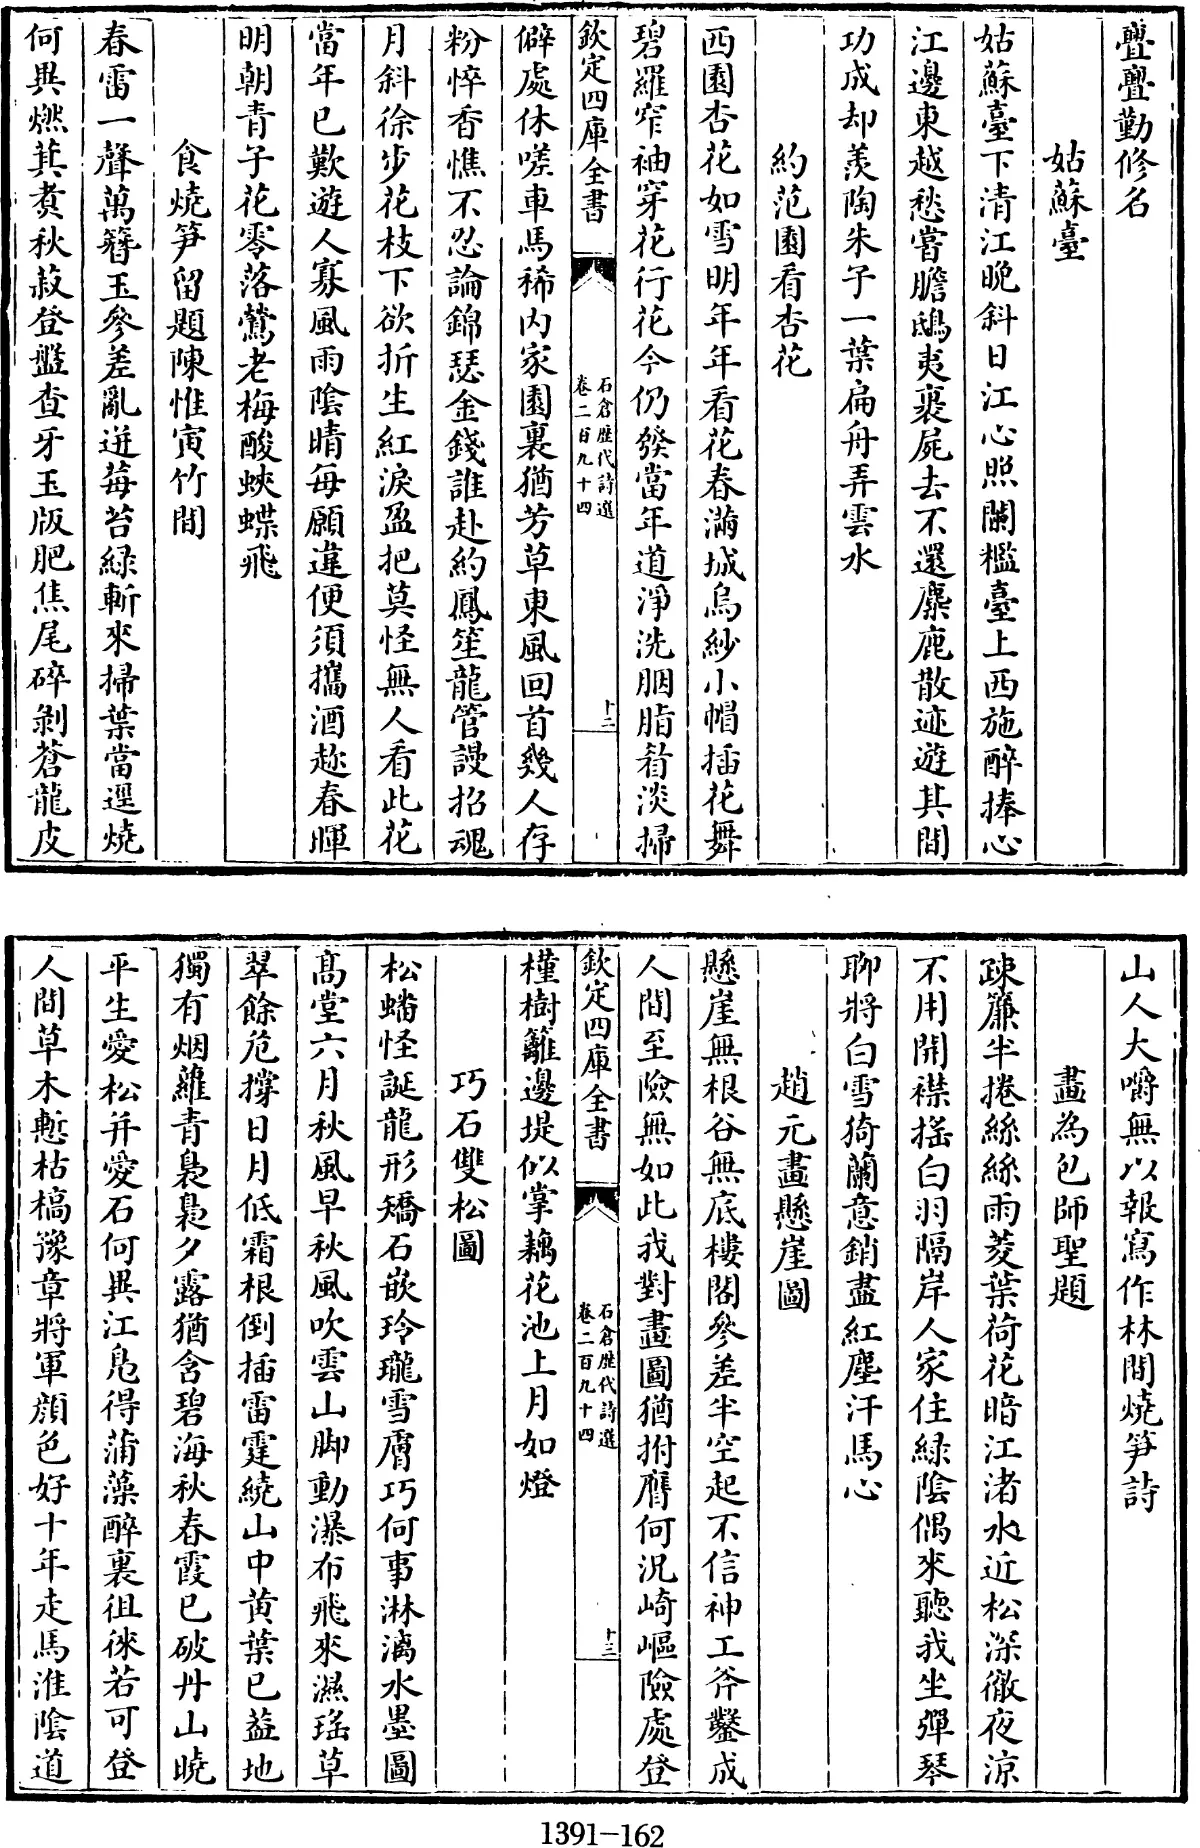 亹亹勤修名
姑蘇臺
姑蘇臺下清江晚斜日江心照闌檻臺上西施醉捧心
江邊東越愁嘗膽鴟夷裹屍去不還麋鹿散迹遊其間
功成却羨陶朱子一葉扁舟弄雲水
約范園看杏花
西園杏花如雪明年年看花春滿城烏紗小帽插花舞
碧羅窄袖穿花行花今仍發當年道淨洗胭脂着淡掃
欽定四庫全書
石倉歷代詩選
卷二百九十四
十二
僻處休嗟車馬稀内家園裏猶芳草東風回首幾人存
粉悴香憔不忍論錦瑟金錢誰赴約鳳笙龍管謾招魂
月斜徐步花枝下欲折生紅淚盈把莫怪無人看此花
當年已歎遊人寡風雨陰晴每願違便須攜酒趂春暉
明朝青子花零落鶯老梅酸蛺蝶飛
食燒笋留題陳惟寅竹間
春雷一聲萬簪玉參差亂迸莓苔緑斬來掃葉當逕燒
何異燃萁煑秋菽登盤查牙玉版肥焦尾碎剝蒼龍皮
山人大嚼無以報寫作林間燒笋詩
畫為包師聖題
疎簾半捲絲絲雨菱葉荷花暗江渚水近松深徹夜凉
不用開襟揺白羽隔岸人家住緑陰偶來聽我坐彈琴
聊將白雪猗蘭意銷盡紅塵汗馬心
趙元畫懸崖圖
懸崖無根谷無底樓閣參差半空起不信神工斧鑿成
人間至險無如此我對畫圖猶拊膺何況崎嶇險處登
欽定四庫全書
石倉歷代詩選
卷二百九十四
十三
槿樹籬邊堤似掌藕花池上月如燈
巧石雙松圖
松蟠怪誕龍形矯石嵌玲瓏雪膚巧何事淋漓水墨圖
髙堂六月秋風早秋風吹雲山脚動瀑布飛來濕瑤草
翠餘危撐日月低霜根倒插雷霆繞山中黄葉已葢地
獨有烟蘿青裊裊夕露猶含碧海秋春霞已破丹山曉
平生愛松并愛石何異江鳬得蒲藻醉裏徂徠若可登
人間草木慙枯槁豫章將軍顔色好十年走馬淮隂道
1391-162